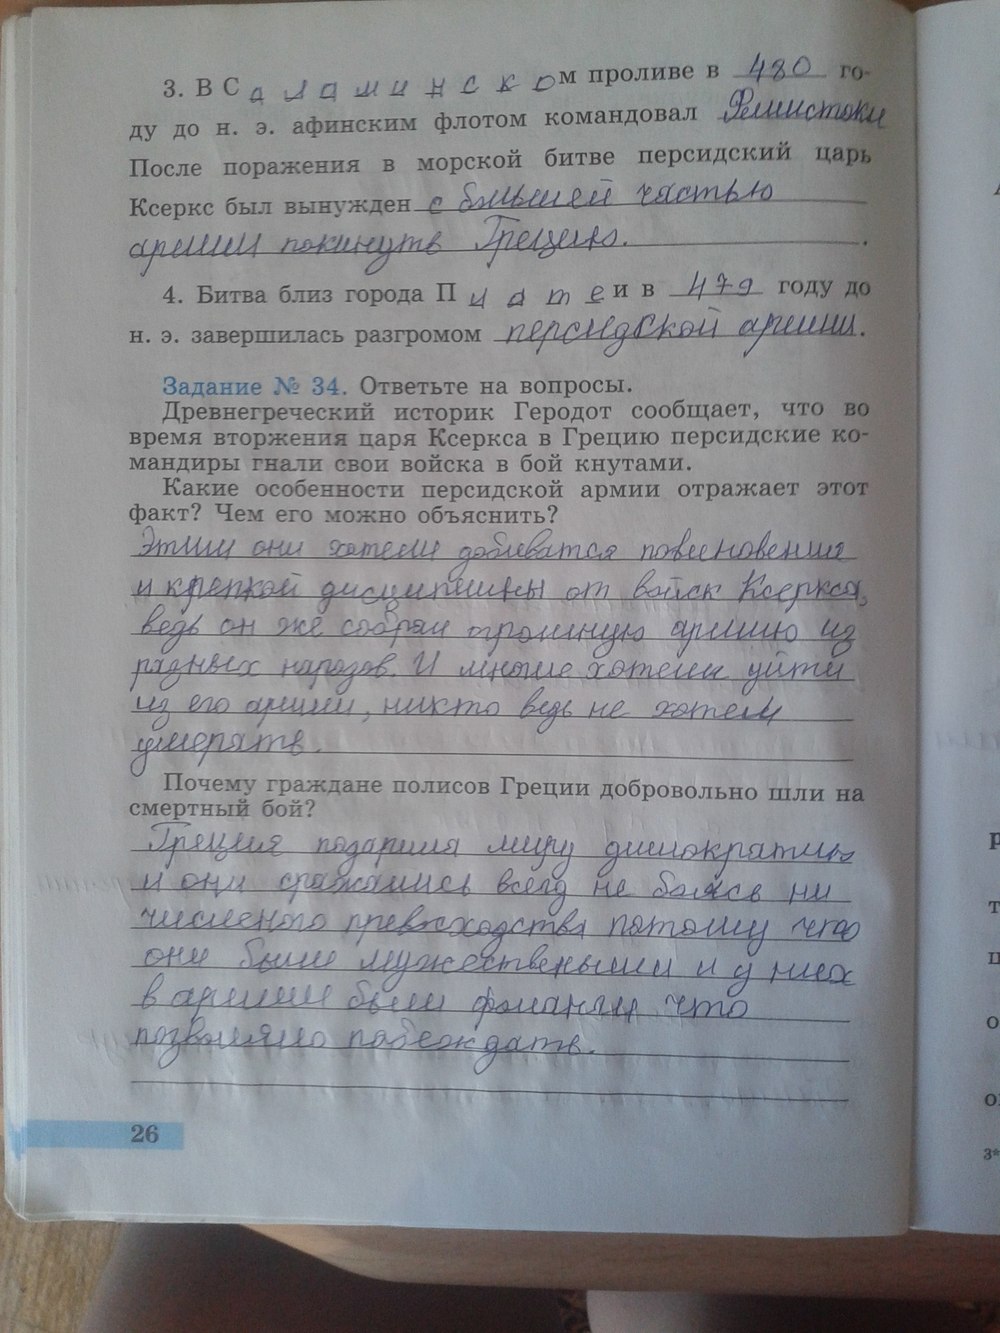 3. В Саламинском проливе в 480 го-
ду до н. э. афинским флотом командовал
После поражения в морской битве персидский царь
Ксеркс был вынужден с большей частью
армии покинуть Грецию.
4. Битва близ города Платеи в 479 году до
н. э. завершилась разгромом персидской армии.
Задание № 34. Ответьте на вопросы.
Древнегреческий историк Геродот сообщает, что во
время вторжения царя Ксеркса в Грецию персидские ко-
мандиры гнали свои войска в бой кнутами.
Какие особенности персидской армии отражает этот
факт? Чем его можно объяснить?
Этим они хотели добиватся повиновения
и крепкой дисциплины от войск Ксеркса,
ведь он же собрал огромную армию из
разных народов. И многие хотели уйти
из его армии, никто ведь не хотел
умерать.
Почему граждане полисов Греции добровольно шли на
смертный бой?
Греция подарила миру димократию
и они сражались всегд не боясь ни
численого превосходства потому что
они были мужествеными и у них
в армии были фаланги что
позволяло побеждать.
26
3*